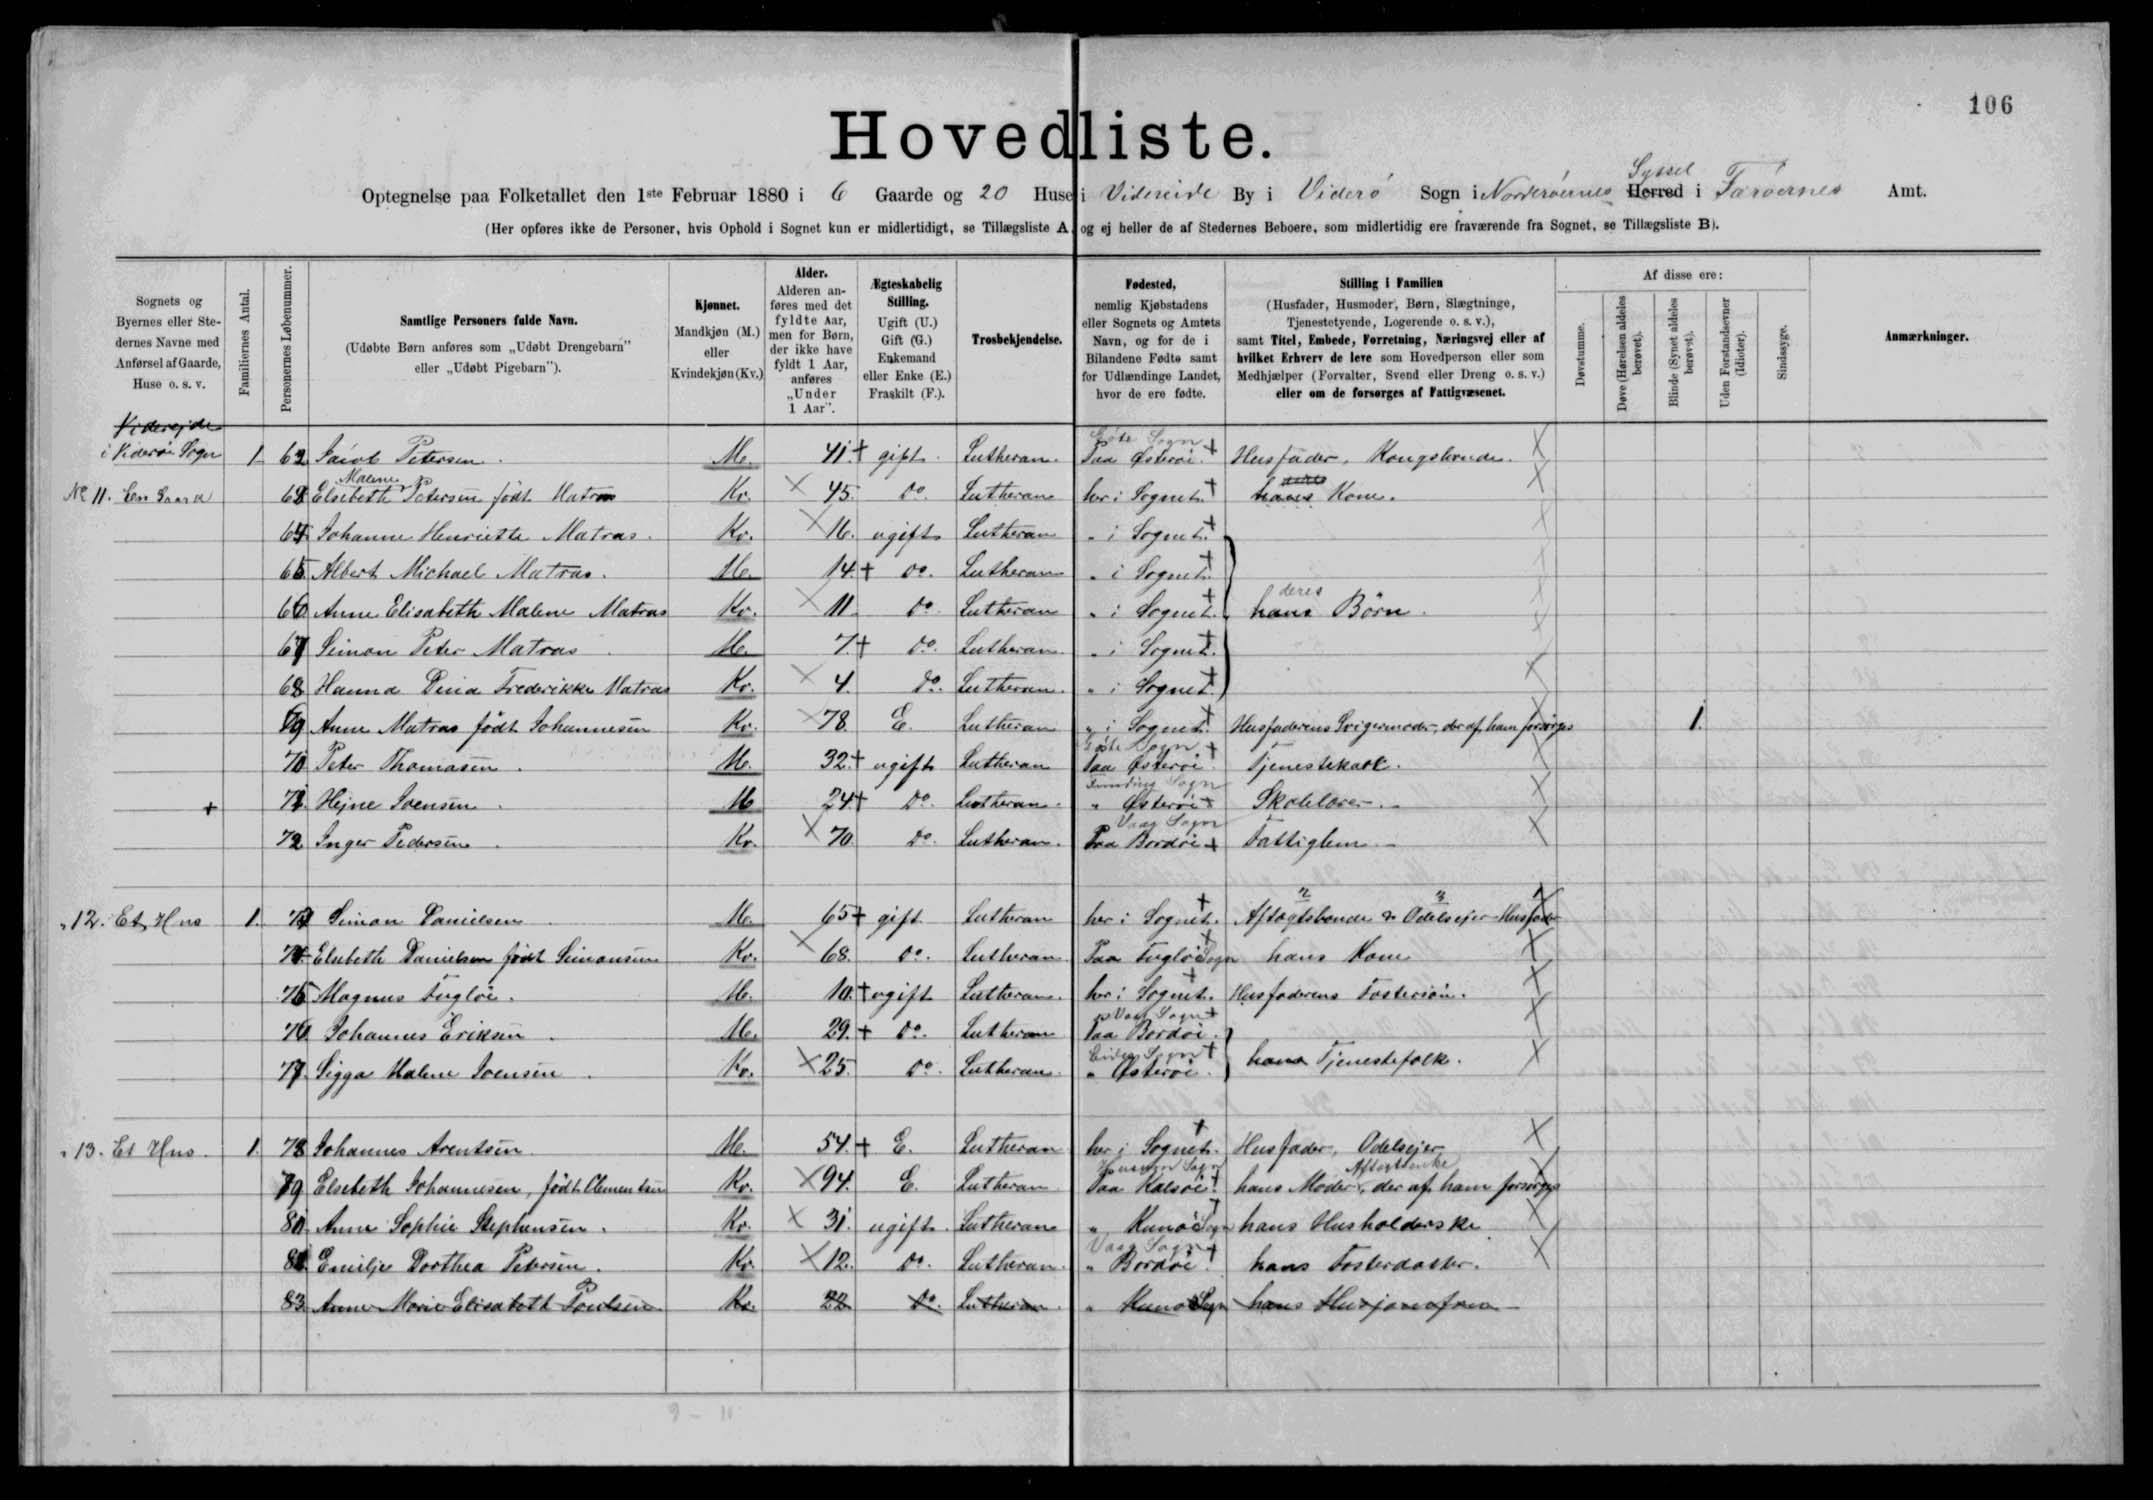 106
Hovedliste.
Optegnelse paa Folketallet den 1ste Februar 1880 i 6 Gaarde og 20 Huse i Videreide By i Viderø Sogn i Norderøernes Herred Syssel i Færøernes Amt.
(Her opføres ikke de Personer, hvis Ophold i Sognet kun er midlertidigt, se Tillægsliste A. og ej heller de af Stedernes Beboere, som midlertidig ere fraværende fra Sognet, se Tillægsliste B).
Sognets og Byernes eller Stedernes Navne med Anførsel af Gaarde, Huse o. s. v.
Familiernes Antal.
Personernes Løbenummer.
Samtlige Personers fulde Navn.
(Udøbte Børn anføres som „Udøbt Drengebarn" eller „Udøbt Pigebarn").
Kjønnet.
Mandkjøn (M.) eller Kvindekjøn (Kv.)
Alder.
Alderen anføres med det fyldte Aar, men for Børn, der ikke have fyldt 1 Aar, anføres „Under 1 Aar".
Ægteskabelig Stilling.
Ugift (U.) Gift (G.) Enkemand eller Enke (E.) Fraskilt (F.).
Trosbekjendelse.
Fødested,
nemlig Kjøbstadens eller Sognets og Amtets Navn, og for de i Bilandene Fødte samt for Udlændinge Landet, hvor de ere fødte.
Stilling i Familien
(Husfader, Husmoder, Børn, Slægtninge, Tjenestetyende, Logerende o. s. v.), samt Titel, Embede, Forretning, Næringsvej eller af hvilket Erhverv de leve som Hovedperson eller som Medhjælper (Forvalter, Svend eller Dreng o. s. v.) eller om de forsørges af Fattigvæsenet.
Af disse ere:
Døvstumme.
Døve (Hørelsen aldeles berøvet).
Blinde (Synet aldeles berøvet).
Uden Forstandsevner (Idioter).
Sindssyge.
Anmærkninger.
Viderejde
i Viderøi Sogn 1. 62 Jaiob Petersen. M. 41.+ gift. Lutheran. Gøte Sogn Paa Østerøi.+ Husfader, Kongsbonde. X
No 11. Een Gaard 63 Elsebeth Malene Petersen født Matras Kv. X 45. Do. Lutheran her i Sognet.+ hans Kone. X
64 Johanne Henriette Matras. Kv. X 16. ugift Lutheran " i Sognet.+ X
65 Albert Michael Matras. M. 14.+ Do. Lutheran " i Sognet.+
66 Anne Elisabeth Malene Matras Kv. X 11. Do. Lutheran " i Sognet.+ hans deres Børn. X
67 Simon Peter Matras M. 7.+ Do. Lutheran. " i Sognet.+
68 Hanna Dina Frederikke Matras Kv. X 4. Do. Lutheran. " i Sognet.+ X
69 Anne Matras født Johannesen Kv. X 78. E. Lutheran " i Sognet.+ Husfaderens Svigermoder, der af ham forsørges X 1.
70 Peter Thomasen. M. 32.+ ugift Lutheran Gøte Sogn Paa Østerøi.+ Tjenestekarl. X
+ 71 Hejne Joensen. M 24+ Do. Lutheran. Funding Sogn " Østerøi+ Skolelærer. X
72 Inger Pedersen. Kv. X 70. Do. Lutheran. Vaag Sogn Paa Bordøi+ Fattiglem X
" 12. Et Hus 1. 73 Simon Danielsen M. 65+ gift Lutheran her i Sognet.+ Aftægtsbonde & Odelsejer Husfader X
74 Elsebeth Danielsen født Simonsen Kv. X 68. Do. Lutheran. Paa Fugløi Sogn+ hans Kone X
75 Magnus Fugløe. M. 10.+ ugift Lutheran. her i Sognet.+ Husfaderens Fostersøn. X
76 Johannes Eriksen. M. 29.+ Do. Lutheran Vaag Sogn+ Paa Bordøi. X
77. Sigga Malene Joensen. Kv. X 25. Do. Lutheran. Sogn+ " Østerøi. hans Tjenestefolk. X
" 13. Et Hus. 1. 78 Johannes Arentsen. M. 54.+ E. Lutheran her i Sognet.+ Husfader, Odelsejer X
79 Elsebeth Johannesen, født Clementsen Kv. X 94. E. Lutheran Sogn Paa Kalsøi.+ hans Moder, Aftægtsenke der af ham forsørges X
80 Anne Sophie Stephensen. Kv. X 31. ugift. Lutheran " Kunøi Sogn+ hans Husholderske X
81 Emilje Dorthea Petersen. Kv. X 12. Do. Lutheran. Vaag Sogn+ " Bordøi. hans Fosterdatter. X
83 Anne Marie Elisabeth Poulsen Kv. 22 Do. Lutheran. " Kunøi Sogn hans Husjomfru
9 - 11